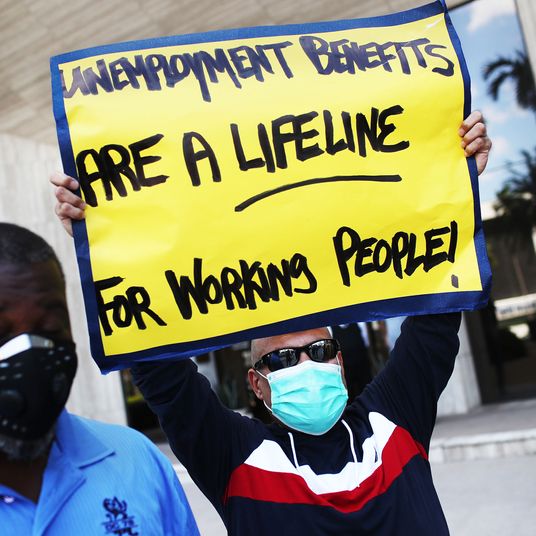 UNEMPLOYMENT BENEFITS
ARE A LIFELINE
FOR WORKING PEOPLE!